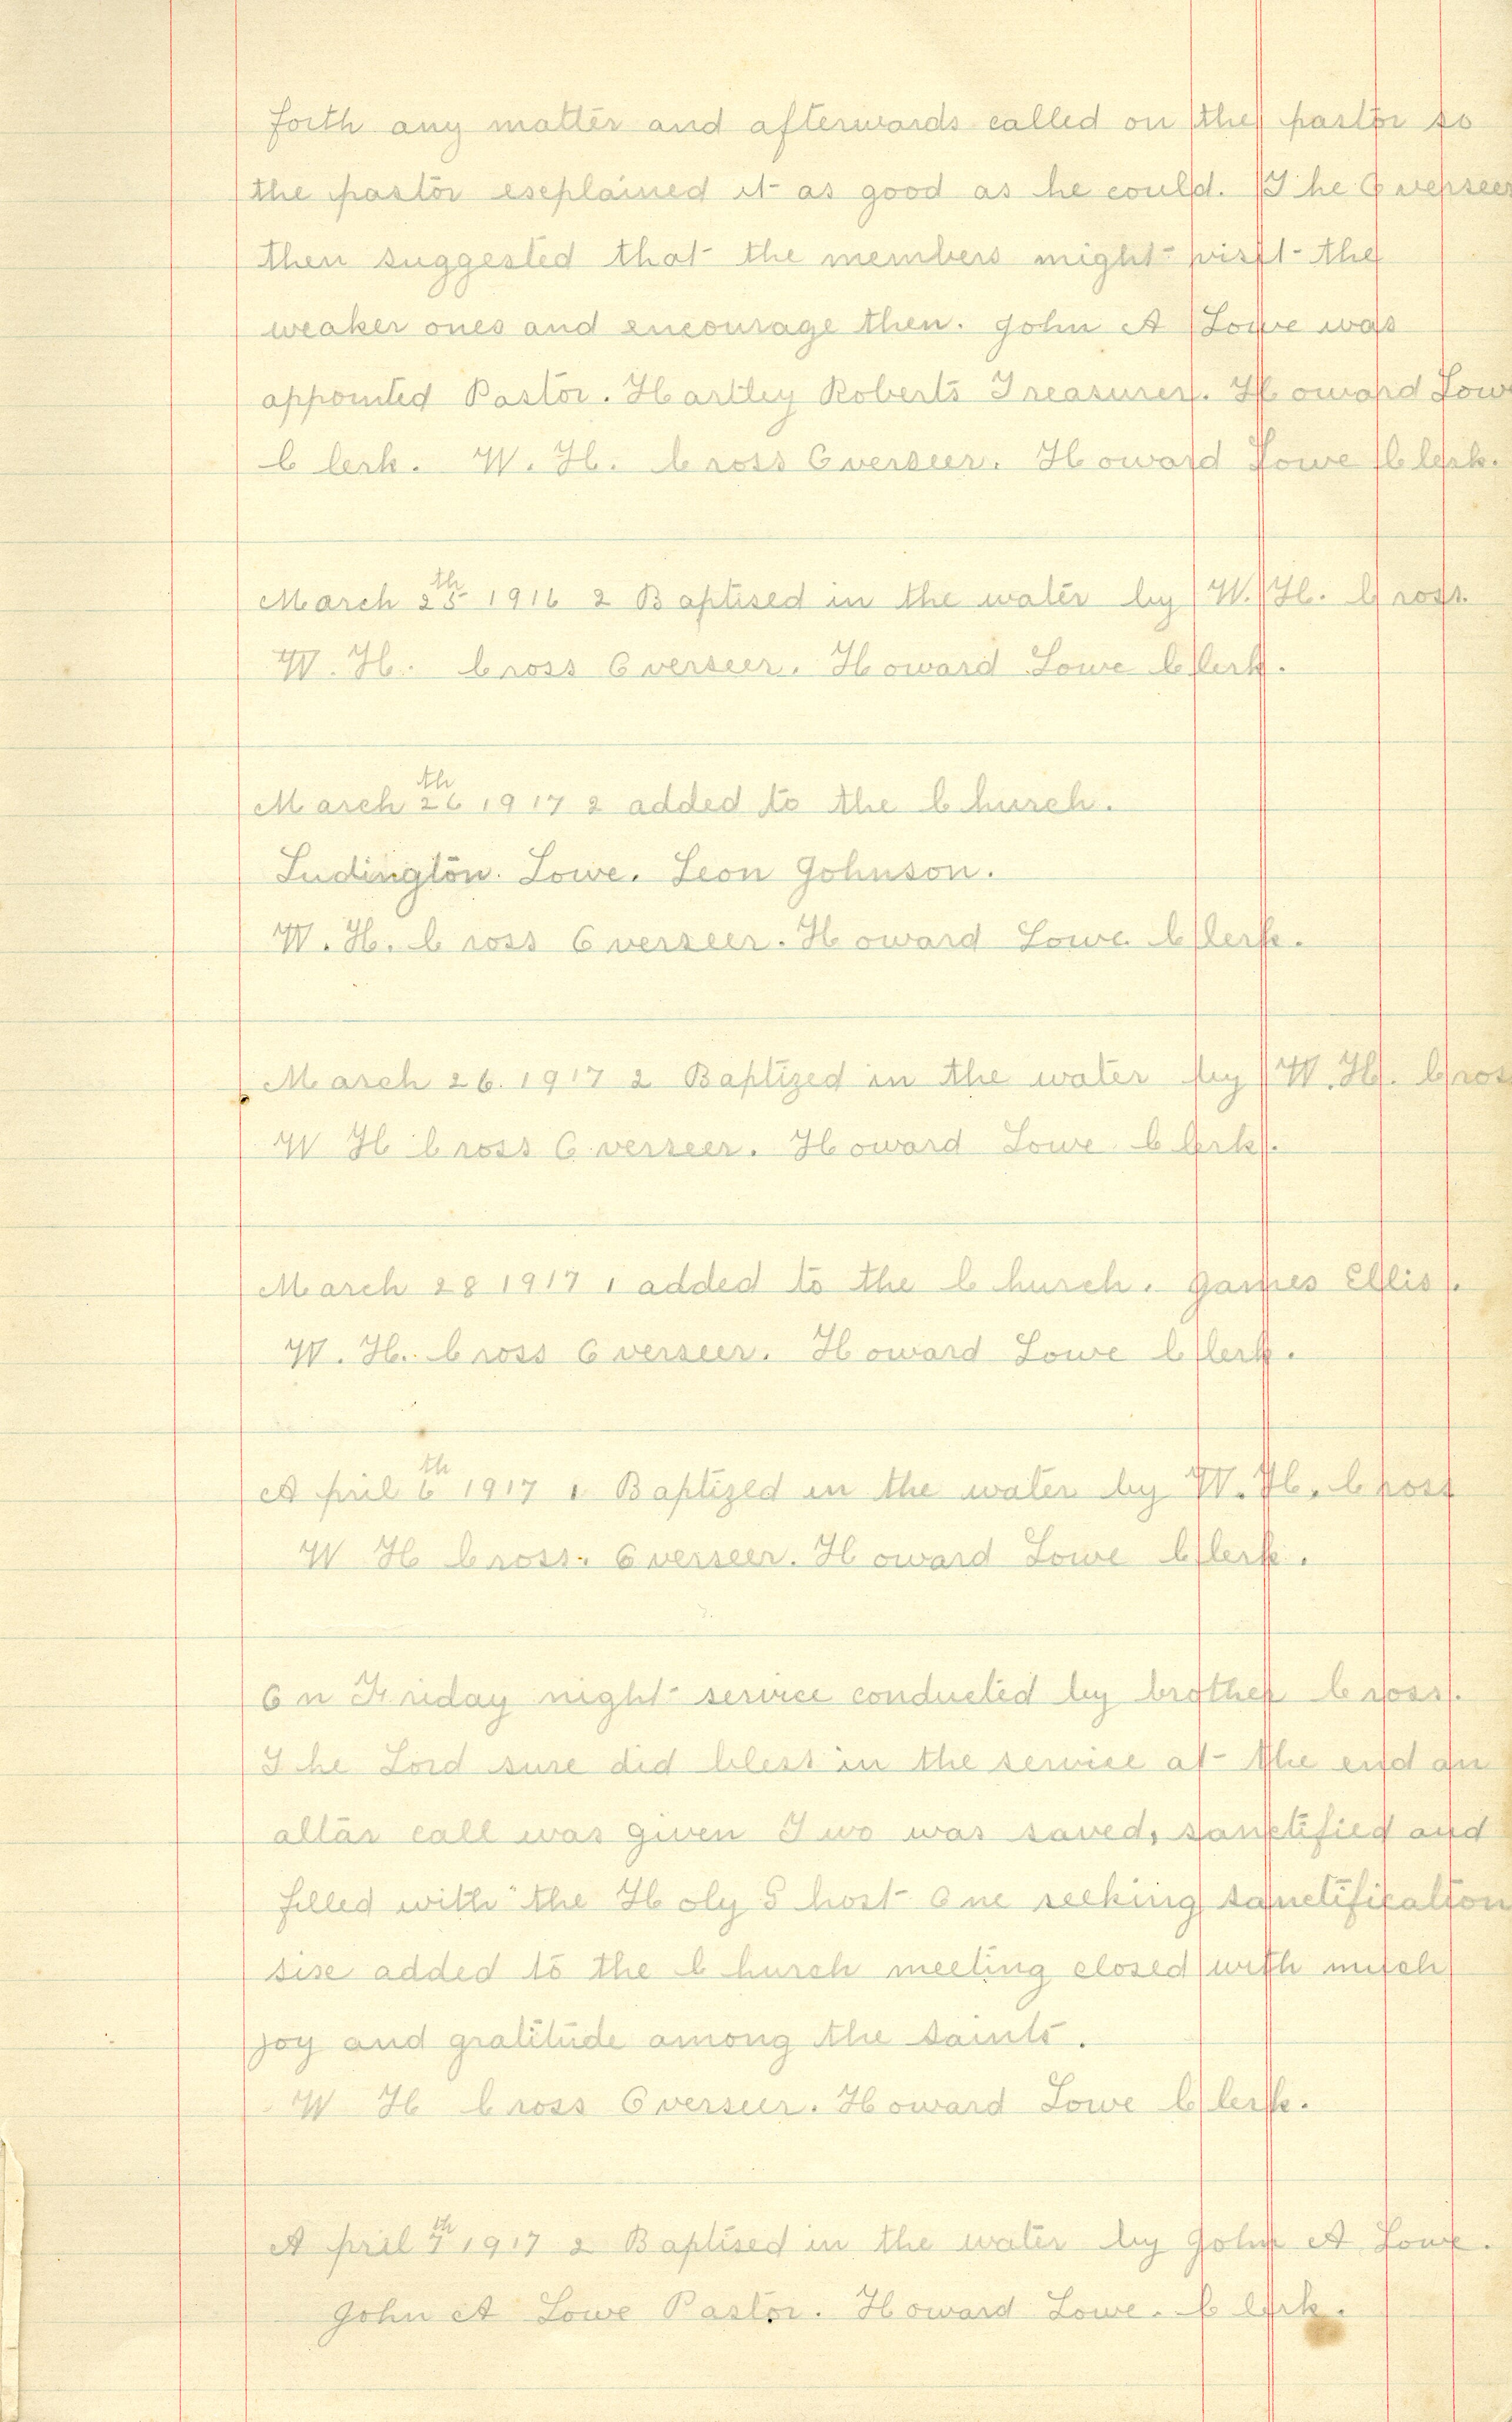 forth any matter and afterwards called on the pastor so
the pastor explained it as good as he could. The Overseer
then suggested that the members might visit the
weaker ones and encourage then. John A Lowe was
appointed Pastor. Hartley Roberts Treasurer. Howard Lowe
Clerk. W. H. Cross Overseer. Howard Lowe Clerk.
March 25th 1916 2 Baptised in the water by W. H. Cross.
W. H. Cross Overseer. Howard Lowe Clerk.
March 26th 1917 2 added to the Church.
Ludington. Lowe. Leon Johnson.
W. H. Cross Overseer. Howard Lowe Clerk.
March 26. 1917 2 Baptized in the water by W. H. Cross
W H Cross Overseer. Howard Lowe Clerk.
March 28 1917 1 added to the Church. James Ellis.
W. H. Cross Overseer. Howard Lowe Clerk.
April 6th 1917 1 Baptized in the water by W. H. Cross
W H Cross. Overseer. Howard Lowe Clerk.
On Friday night service conducted by brother Cross.
The Lord sure did bless in the service at the end an
altar call was given Two was saved, sanctified and
filled with the Holy Ghost One seeking sanctification
six added to the Church meeting closed with much
joy and gratitude among the saints.
W H Cross Overseer. Howard Lowe Clerk.
April 7th 1917 2 Baptised in the water by John A Lowe.
John A Lowe Pastor. Howard Lowe. Clerk.